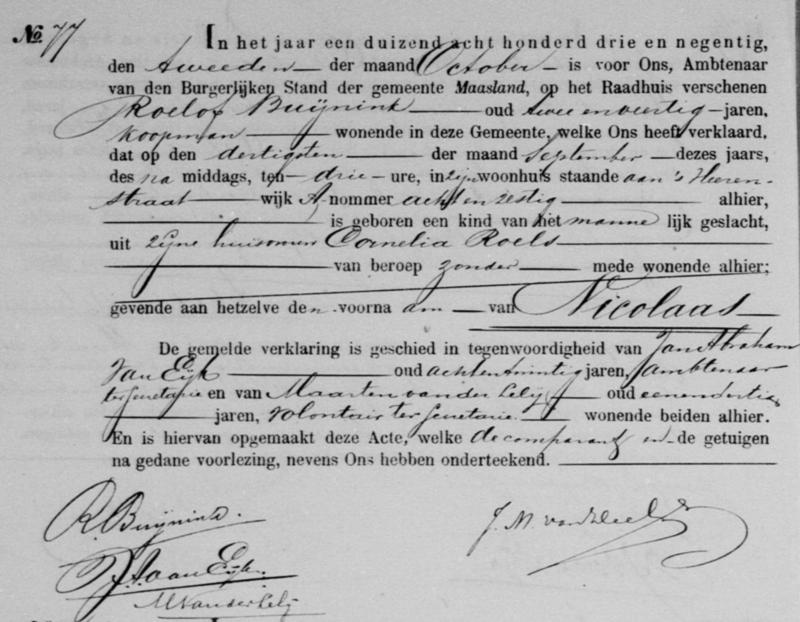 No. 77
In het jaar een duizend acht honderd drie en negentig,
den tweeden der maand October is voor Ons, Ambtenaar
van den Burgerlijken Stand der gemeente Maasland, op het Raadhuis verschenen
Roelof Buijnink oud twee en veertig jaren,
koopman wonende in deze Gemeente, welke Ons heeft verklaard,
dat op den dertigsten der maand September dezes jaars,
des na middags, ten drie ure, in zijn woonhuis staande aan 's Heeren-
straat wijk A nommer acht en zestig alhier,
is geboren een kind van het manne lijk geslacht,
uit zijne huisvrouw Cornelia Roels
van beroep zonder mede wonende alhier;
gevende aan hetzelve den voorna am van Nicolaas
De gemelde verklaring is geschied in tegenwoordigheid van Jan Abraham
van Eijk oud acht en twintig jaren, ambtenaar
ter secretarie en van Maarten van der Lelij oud een en dertig
jaren, volontair ter secretarie wonende beiden alhier.
En is hiervan opgemaakt deze Acte, welke de comparant en de getuigen
na gedane voorlezing, nevens Ons hebben onderteekend.
R. Buijnink.
J. A. van Eijk.
M van der Lelij